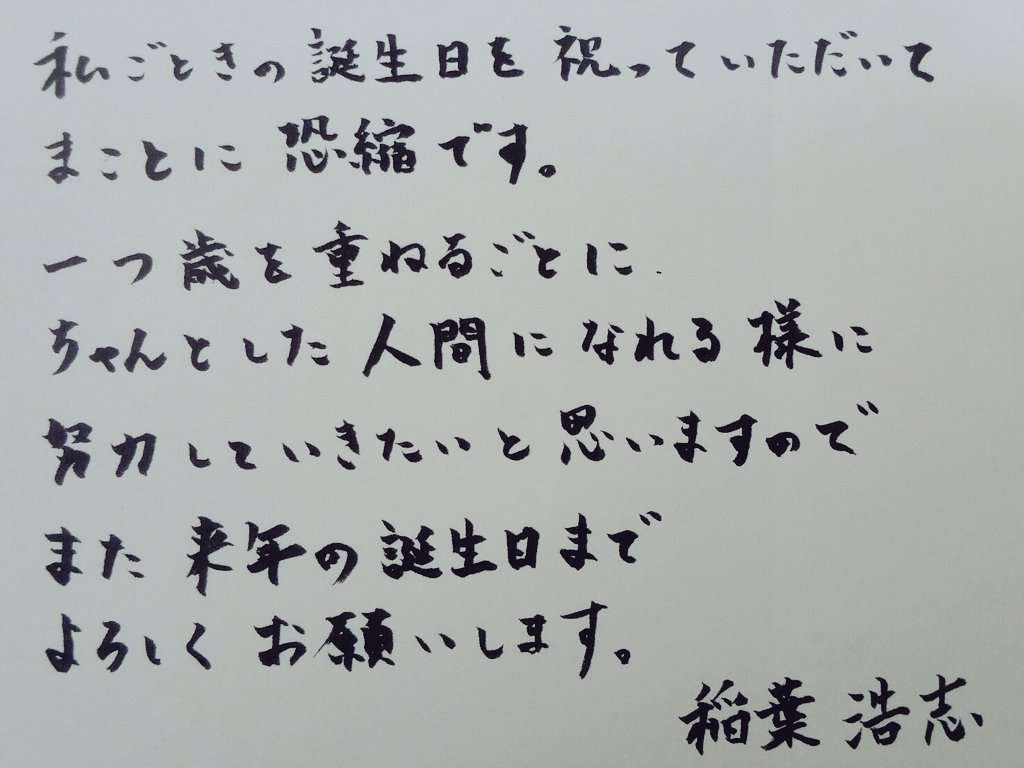 私ごときの誕生日を祝っていただいて
まことに恐縮です。
一つ歳を重ねるごとに
ちゃんとした人間になれる様に
努力していきたいと思いますので
また来年の誕生日まで
よろしくお願いします。
稲葉浩志